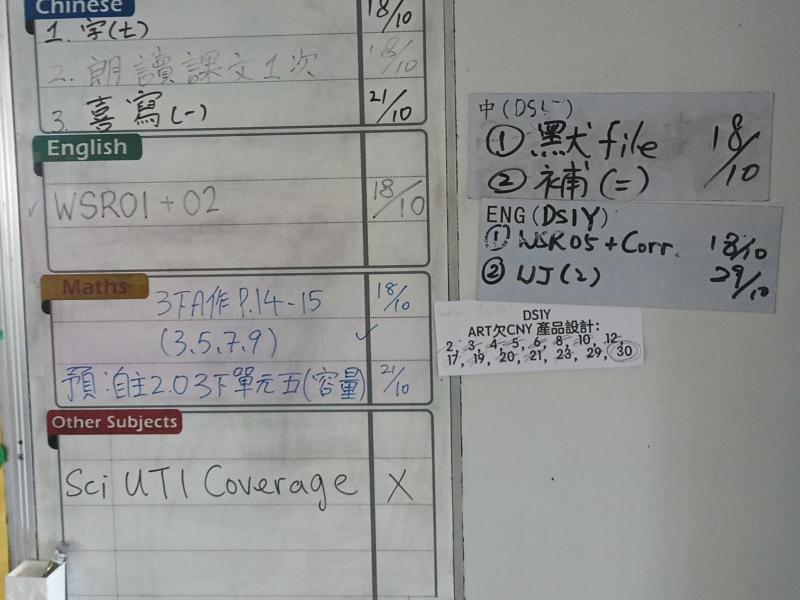 Chinese
1. 字(七) 18/10
2. 朗讀課文1次 18/10
3. 喜寫(一) 21/10
English
WSR01 + 02 18/10
Maths
3下A作 P.14-15 18/10
(3.5.7.9)
預:自主2.0 3下單元五(容量) 21/10
Other Subjects
Sci UT1 Coverage X
中(DS1一)
① 默 file 18/10
② 補(二)
ENG (DS1Y)
① WSR05 + Corr. 18/10
② WJ(2) 29/10
DS1Y
ART欠CNY 產品設計:
2, 3, 4, 5, 6, 8, 10, 12,
17, 19, 20, 21, 23, 29, 30